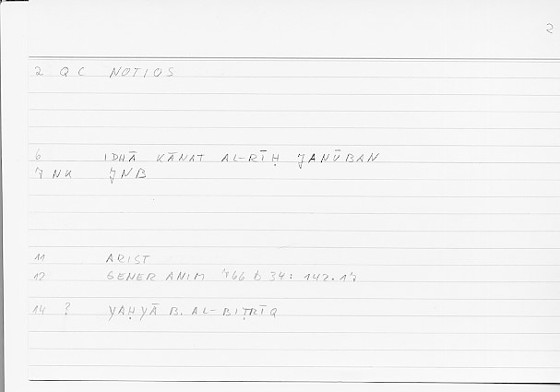 2
2 QC NOTIOS
6 IDHĀ KĀNAT AL-RĪḤ JANŪBAN
7 NK JNB
11 ARIST
12 GENER ANIM 766 b 34: 142.17
14 ? YAḤYĀ B. AL-BIṬRĪQ